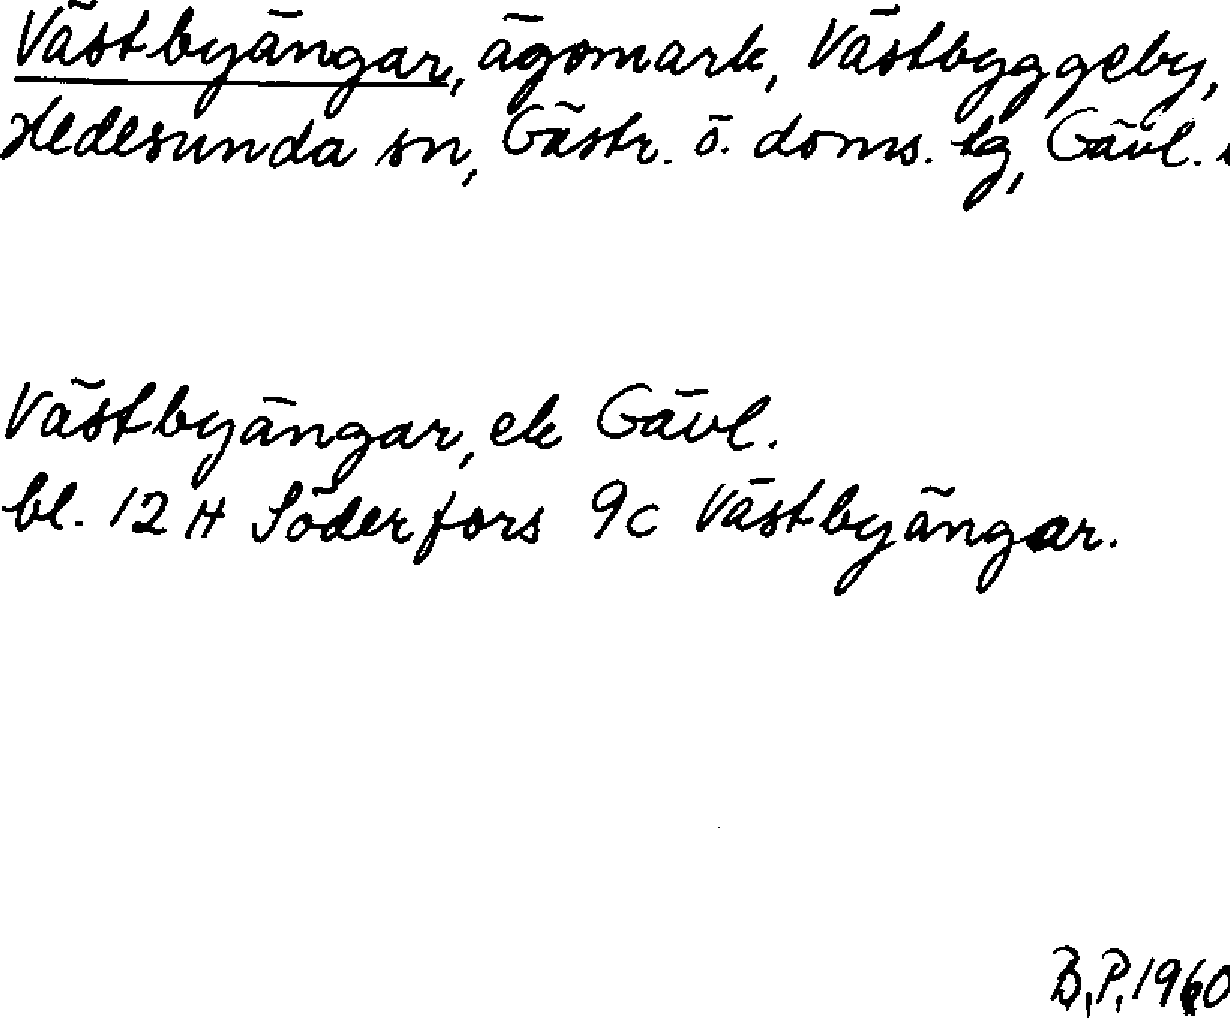 Västbyängar, ägomark, Västbyggeby,
Hedesunda sn, Gästr. ö. doms. tg, Gävl.
Västbyängar, ek Gävl.
bl. 12 H Söderfors 9c Västbyängar.
B.P. 1960